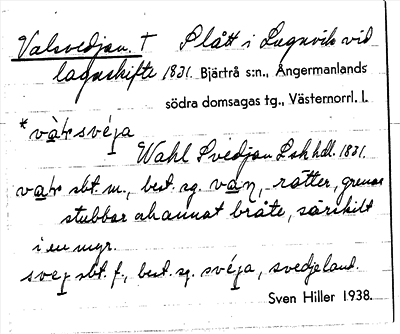 Valsvedjan. † Slått i Lugnvik vid
lagaskifte 1831. Bjärtrå s:n., Ångermanlands
södra domsagas tg., Västernorrl. l.
Wahl Svedjan Lskhdl. 1831.
sbt. m., best. sg. rötter, grenar
stubbar ah annat bråte, särskilt
i en myr.
sbt. f., best. sg. svedjeland.
Sven Hiller 1938.